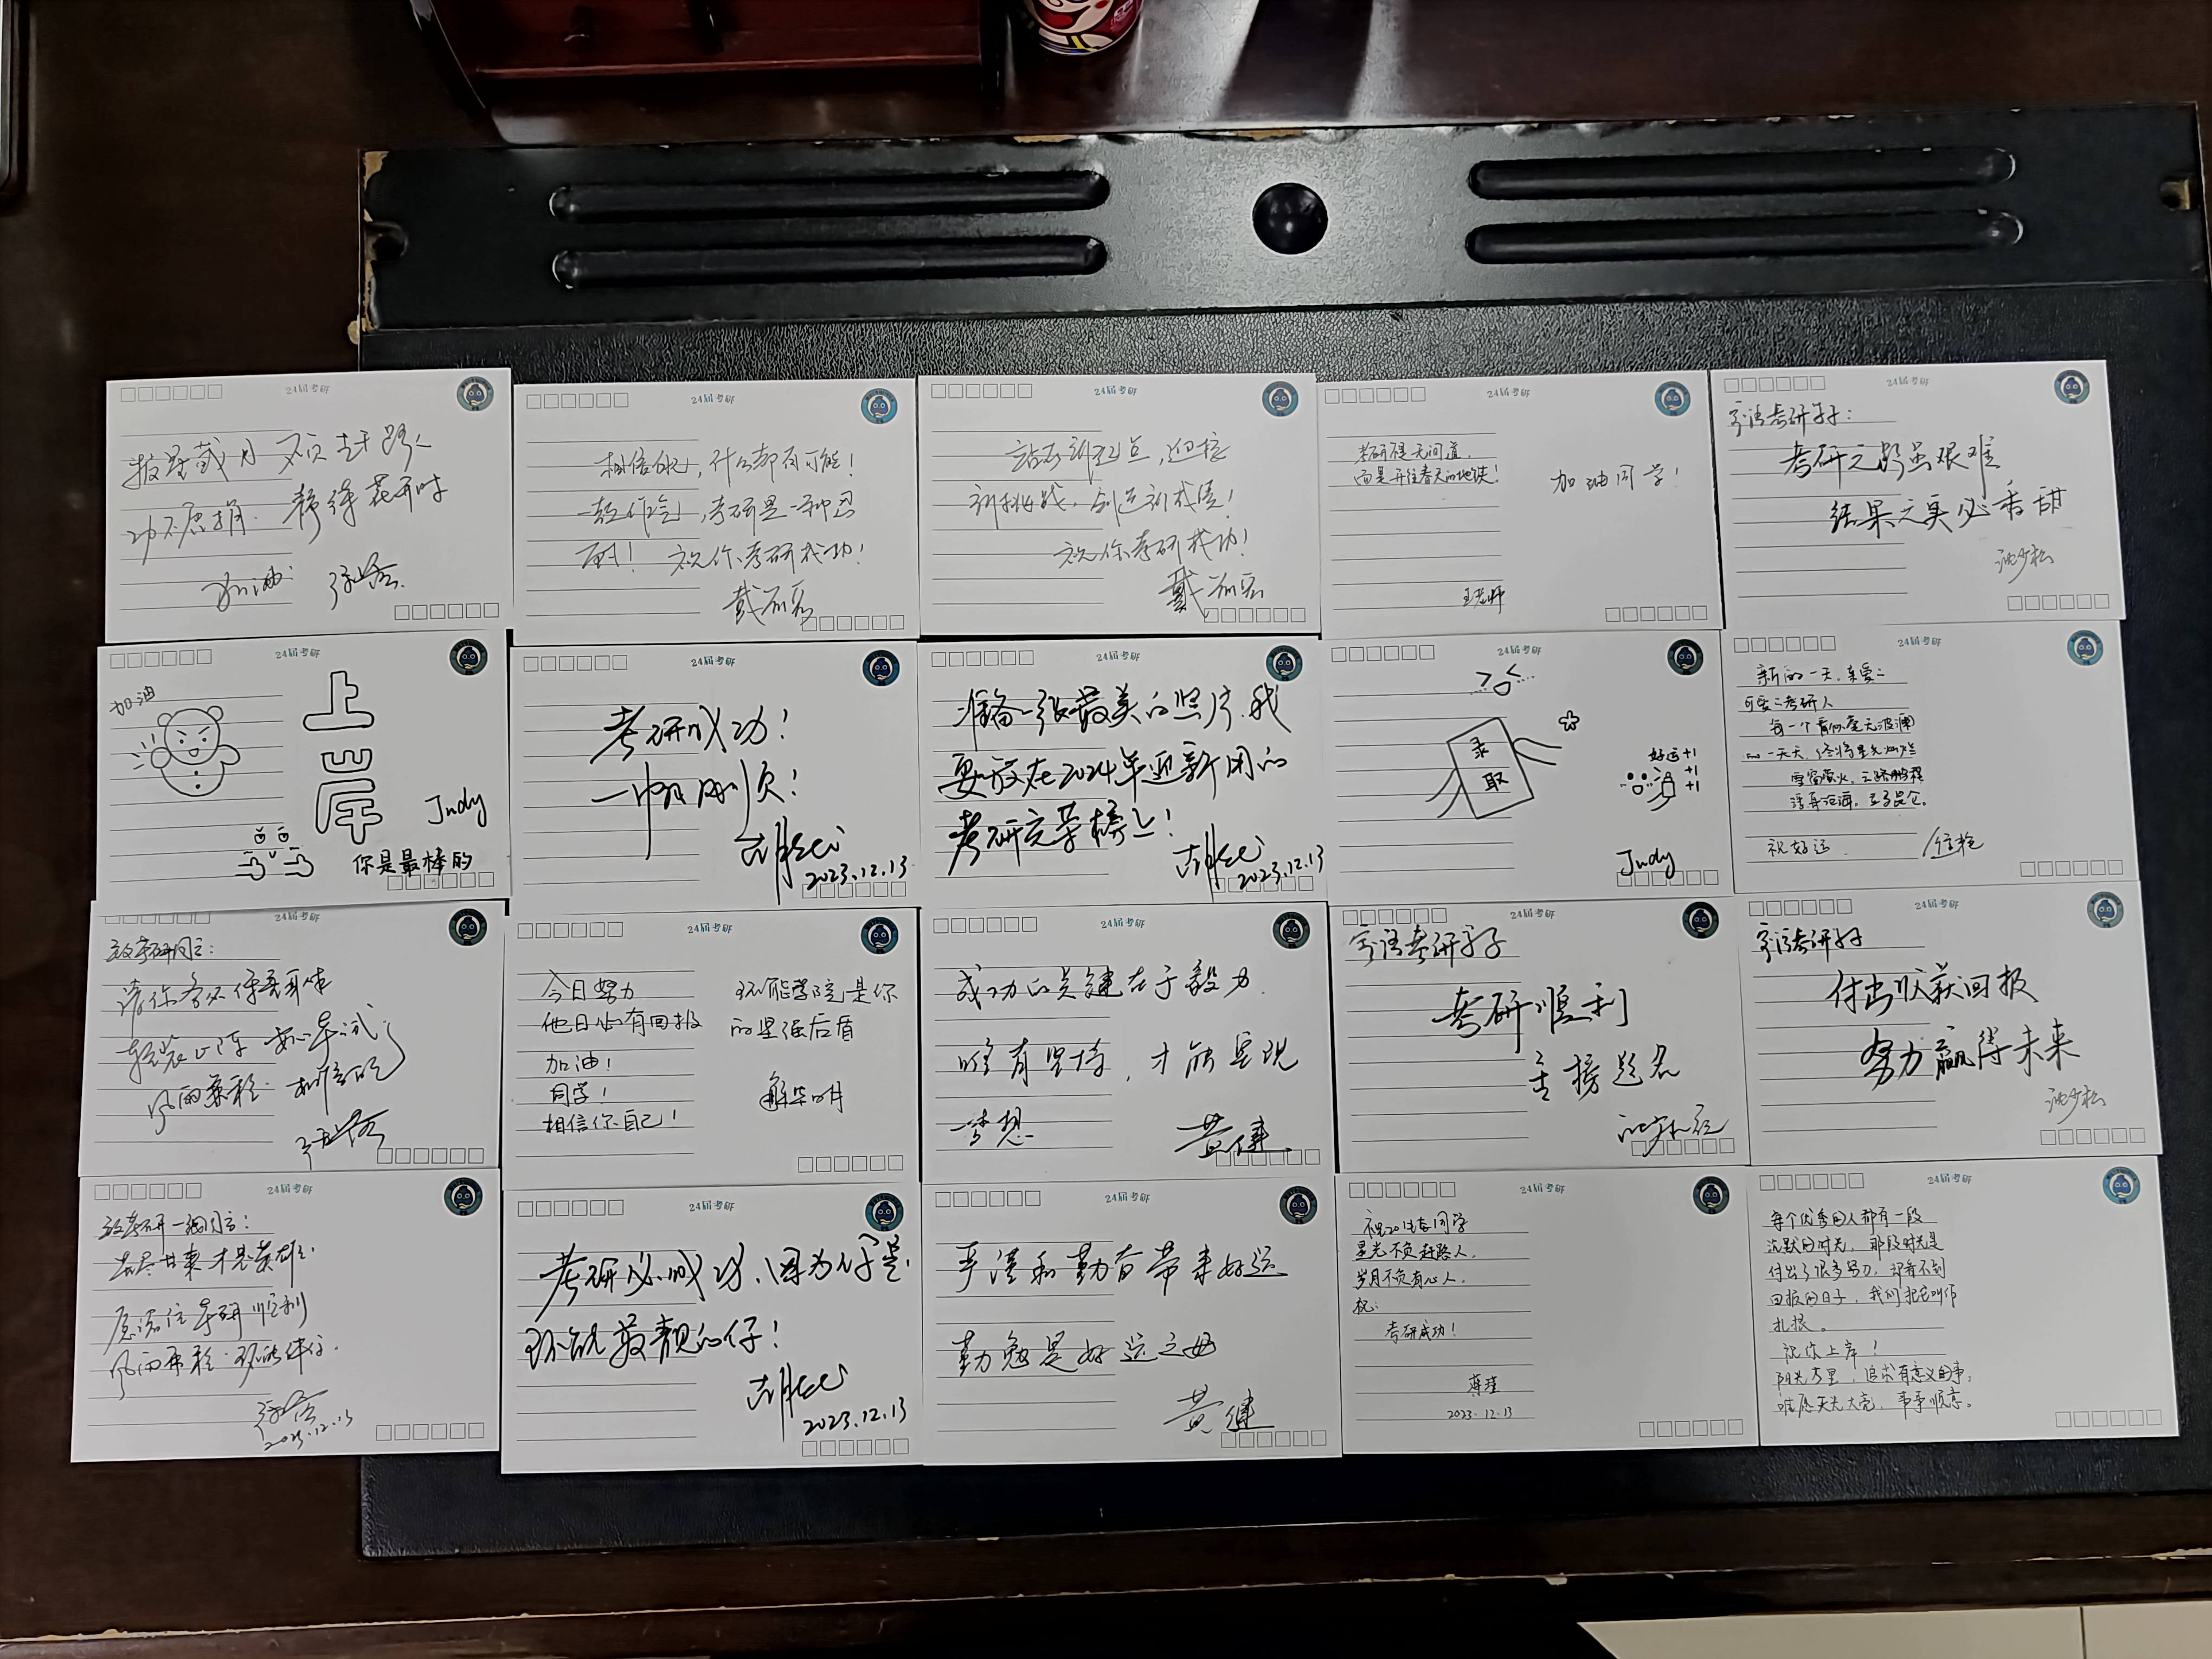 24届考研
披星戴月 不负赶路人
功不唐捐. 静待花开时
加油
24届考研
相信自己,什么都有可能!
考研是一种
祝你考研成功!
24届考研
站在新起点,迎接
新挑战,创造新成绩!
祝你考研成功!
24届考研
考研不是无间道,
而是开往春天的地铁!
加油同学!
王老师
24届考研
考研学子:
考研之路虽艰难
结果之实必香甜
沈少松
24届考研
加油
上岸
Judy
你是最棒的
24届考研
考研成功!
一帆风顺!
2023.12.13
24届考研
准备一张最美的照片,我
要放在2024年迎新用的
考研光荣榜上!
2023.12.13
24届考研
录
取
好运+1
+1
+1
Judy
24届考研
新的一天,亲爱的
可爱的考研人
每一个看似毫无波澜
的一天天,终将星光灿烂
雪窗萤火,云路鹏程
祝好运
24届考研
致考研同学:
轻装上阵
风雨兼程
24届考研
今日努力
他日必有回报
加油!
同学!
相信你自己!
环能学院是你
的坚强后盾
24届考研
成功的关键在于毅力,
唯有坚持,才能实现
梦想
黄健
24届考研
考研学子
考研顺利
金榜题名
24届考研
考研学子
付出收获回报
努力赢得未来
沈少松
24届考研
致考研一线同学:
苦尽甘来才是英雄
愿诸位考研顺利
风雨兼程
2023.12.13
24届考研
考研必成功,因为你是
环能最靓的仔!
2023.12.13
24届考研
严谨和勤奋带来好运
勤勉是好运之母
黄健
24届考研
祝20生态同学
星光不负赶路人,
岁月不负有心人,
祝:
考研成功!
蒋瑾
2023.12.13
24届考研
每个优秀的人都有一段
沉默的时光,那段时光是
付出了很多努力,却看不到
回报的日子,我们把它叫作
扎根。
祝你上岸!
阳光万里,追求有意义的事,
唯愿天光大亮,事事顺意。